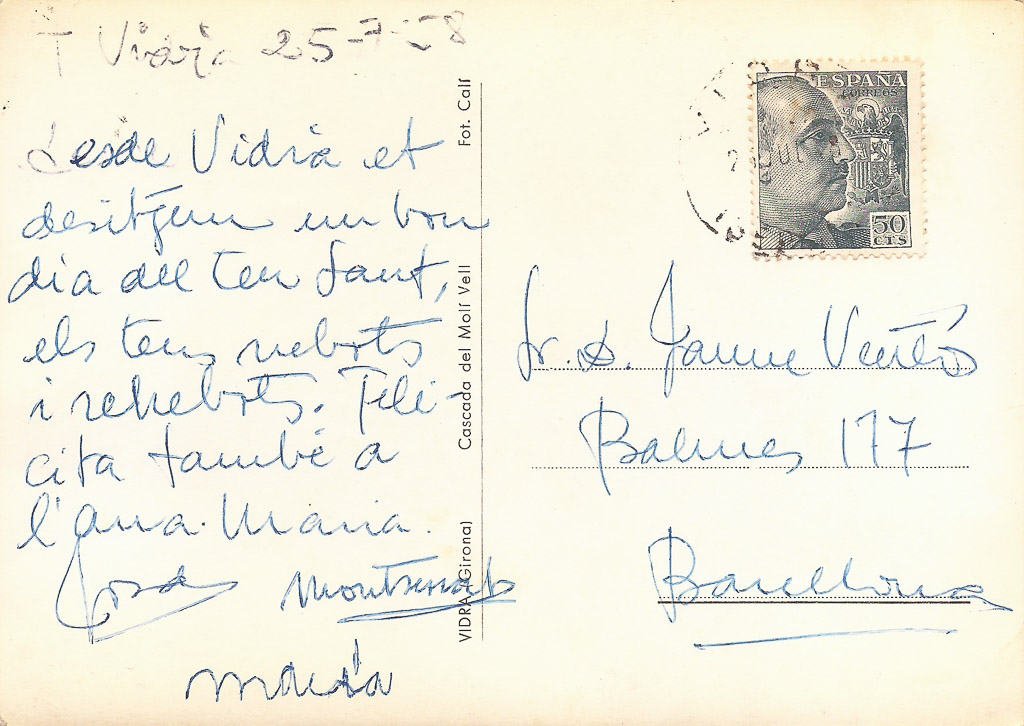 Vidrà 25-7-58
Desde Vidrà et
desitgem un bon
dia del teu Sant,
els teus nebots
i renebots. Feli-
cita també a
l'Ana Maria.
Montserrat
Maria
VIDRA (Girona) Cascada del Molí Vell Fot. Calí
ESPAÑA
CORREOS
50
CTS
Sr. D. Jaume Ventós
Balmes 177
Barcelona